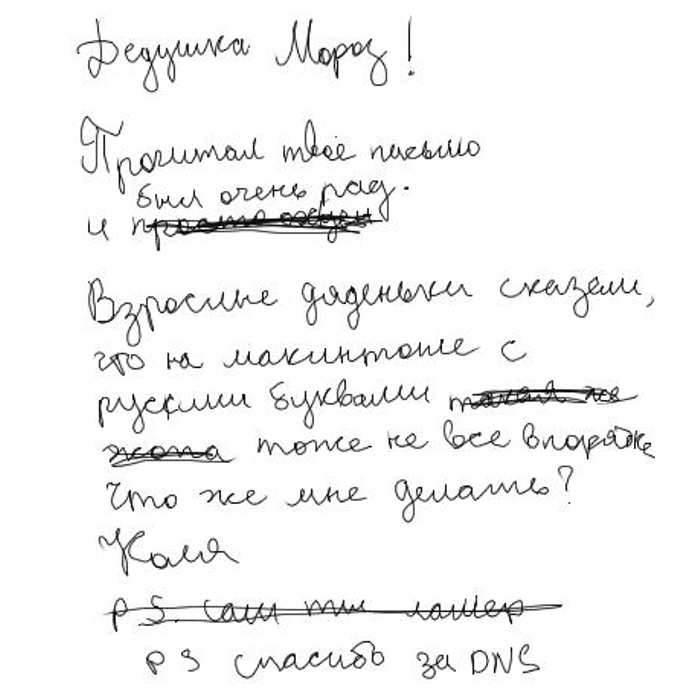 Дедушка Мороз!
Прочитал твоё письмо
был очень рад.
и просто охуел
Взрослые дяденьки сказали,
что на макинтоше с
рускими буквами такая же
жопа тоже не все впорядке
Что же мне делать?
Коля
PS. Сам ты ламер
PS спасибо за DNS